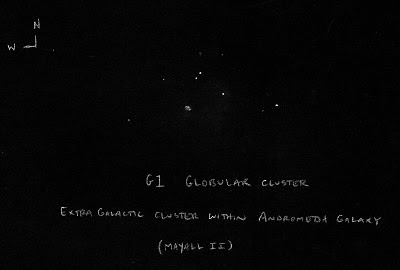 N
W
G1 GLOBULAR CLUSTER
EXTRA GALACTIC CLUSTER WITHIN ANDROMEDA GALAXY
(MAYALL II)